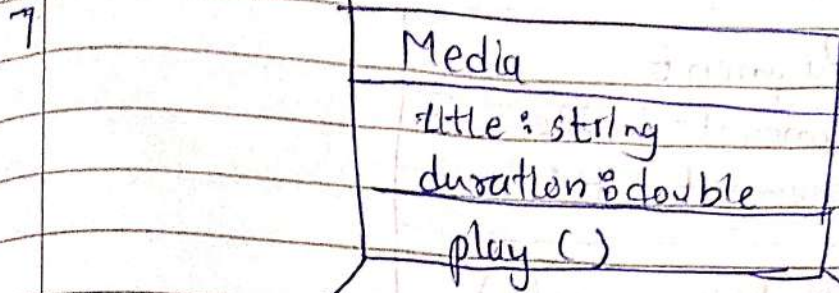 7
Media
title : string
duration : double
play ()